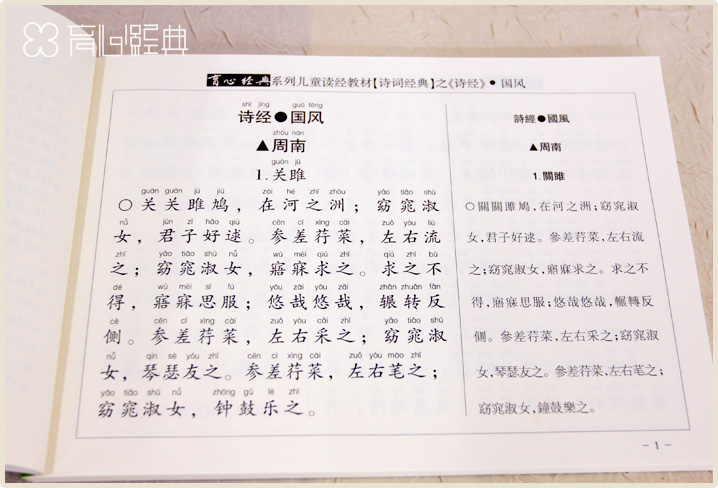 育心经典
育心经典系列儿童读经教材【诗词经典】之《诗经》●国风
shī jīng guó fēng
诗经●国风
zhōu nán
▲周南
guān jū
1.关雎
guān guān jū jiū zài hé zhī zhōu yǎo tiǎo shū
○关关雎鸠，在河之洲；窈窕淑
nǚ jūn zǐ hǎo qiú cēn cī xìng cài zuǒ yòu liú
女，君子好逑。参差荇菜，左右流
zhī yǎo tiǎo shū nǚ wù mèi qiú zhī qiú zhī bù
之；窈窕淑女，寤寐求之。求之不
dé wù mèi sī fú yōu zāi yōu zāi zhǎn zhuǎn fǎn
得，寤寐思服；悠哉悠哉，辗转反
cè cēn cī xìng cài zuǒ yòu cǎi zhī yǎo tiǎo shū
侧。参差荇菜，左右采之；窈窕淑
nǚ qín sè yǒu zhī cēn cī xìng cài zuǒ yòu mào zhī
女，琴瑟友之。参差荇菜，左右芼之；
yǎo tiǎo shū nǚ zhōng gǔ lè zhī
窈窕淑女，钟鼓乐之。
詩經●國風
▲周南
1.關雎
○關關雎鳩，在河之洲；窈窕淑
女，君子好逑。參差荇菜，左右流
之；窈窕淑女，寤寐求之。求之不
得，寤寐思服；悠哉悠哉，輾轉反
側。參差荇菜，左右采之；窈窕淑
女，琴瑟友之。參差荇菜，左右芼之；
窈窕淑女，鐘鼓樂之。
- 1 -